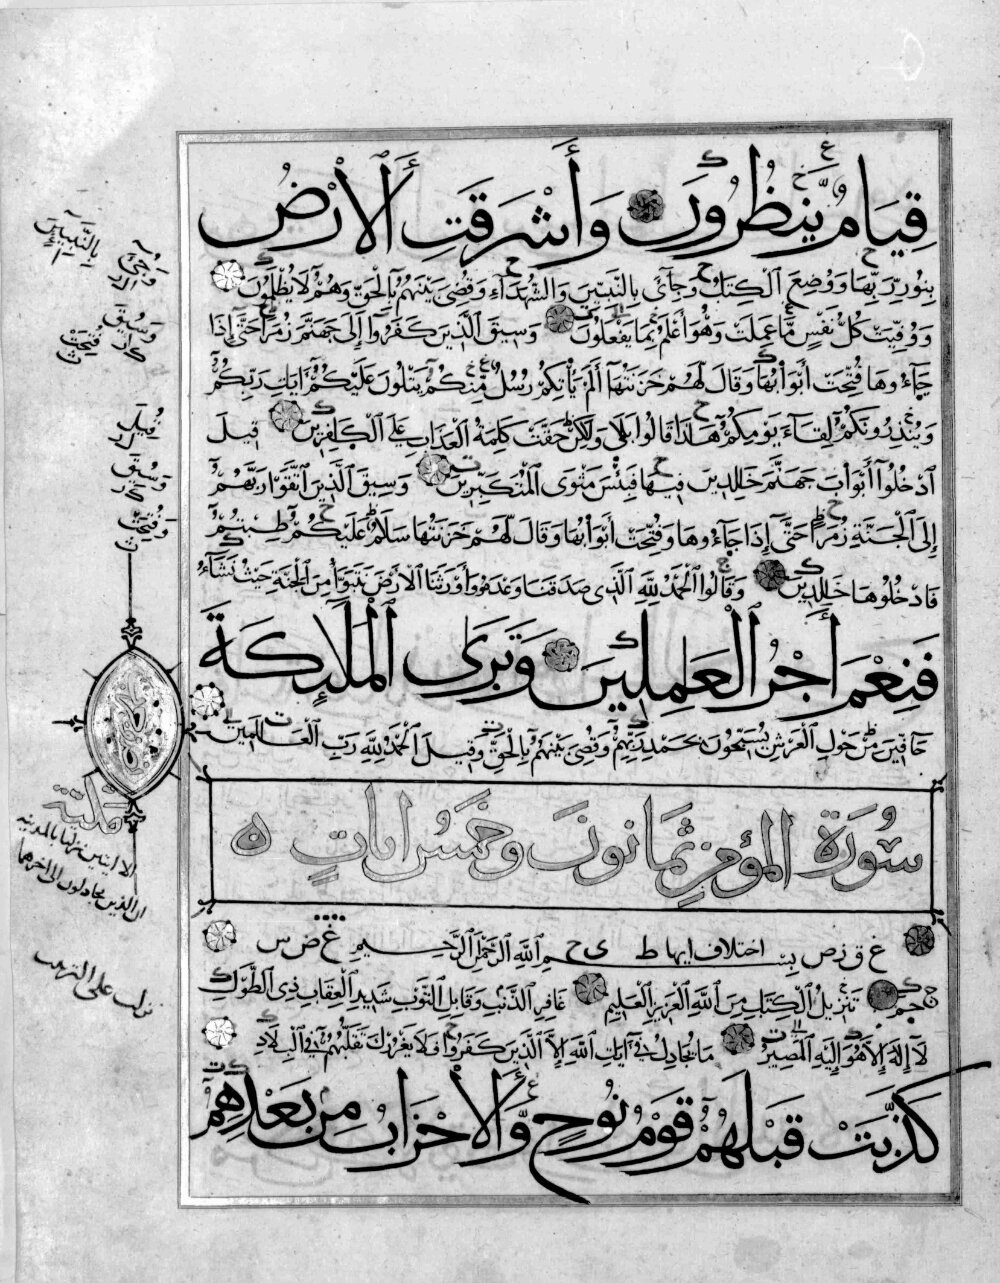 قِيَامٌ يَنْظُرُونَ وَأَشْرَقَتِ ٱلْأَرْضُ
بِنُورِ رَبِّهَا وَوُضِعَ ٱلْكِتَابُ وَجِايءَ بِالنَّبِيّٖنَ وَالشُّهَدَآءِ وَقُضِيَ بَيْنَهُمْ بِالْحَقِّ وَهُمْ لَا يُظْلَمُونَ
وَوُفِّيَتْ كُلُّ نَفْسٍ مَّا عَمِلَتْ وَهُوَ أَعْلَمُ بِمَا يَفْعَلُونَ وَسِيقَ ٱلَّذِينَ كَفَرُوا إِلَى جَهَنَّمَ زُمَرًا حَتَّى إِذَا
جَآءُوهَا فُتِحَتْ أَبْوَابُهَا وَقَالَ لَهُمْ خَزَنَتُهَا أَلَمْ يَأْتِكُمْ رُسُلٌ مِّنْكُمْ يَتْلُونَ عَلَيْكُمْ آيَاتِ رَبِّكُمْ
وَيُنْذِرُونَكُمْ لِقَاءَ يَوْمِكُمْ هَذَا قَالُوا بَلَى وَلَكِنْ حَقَّتْ كَلِمَةُ الْعَذَابِ عَلَى ٱلْكَافِرِينَ قِيلَ
ٱدْخُلُوا أَبْوَابَ جَهَنَّمَ خَالِدِينَ فِيهَا فَبِئْسَ مَثْوَى الْمُتَكَبِّرِينَ وَسِيقَ ٱلَّذِينَ ٱتَّقَوْا رَبَّهُمْ
إِلَى ٱلْجَنَّةِ زُمَرًا حَتَّى إِذَا جَآءُوهَا وَفُتِحَتْ أَبْوَابُهَا وَقَالَ لَهُمْ خَزَنَتُهَا سَلَامٌ عَلَيْكُمْ طِبْتُمْ
فَادْخُلُوهَا خَالِدِينَ وَقَالُوا ٱلْحَمْدُ لِلَّهِ ٱلَّذِي صَدَقَنَا وَعْدَهُ وَأَوْرَثَنَا ٱلْأَرْضَ نَتَبَوَّأُ مِنَ ٱلْجَنَّةِ حَيْثُ نَشَآءُ
فَنِعْمَ أَجْرُ ٱلْعَامِلِينَ وَتَرَى ٱلْمَلَائِكَةَ
حَآفِّينَ مِنْ حَوْلِ الْعَرْشِ يُسَبِّحُونَ بِحَمْدِ رَبِّهِمْ وَقُضِيَ بَيْنَهُمْ بِالْحَقِّ وَقِيلَ ٱلْحَمْدُ لِلَّهِ رَبِّ ٱلْعَالَمِينَ
سُورَةُ المؤمن ثَمَانُونَ وَخَمْسُ ايَاتٍ
بِسْمِ ٱللَّهِ ٱلرَّحْمَنِ ٱلرَّحِيمِ
اختلاف ايها
حم تَنْزِيلُ ٱلْكِتَابِ مِنَ ٱللَّهِ ٱلْعَزِيزِ ٱلْعَلِيمِ غَافِرِ ٱلذَّنْبِ وَقَابِلِ ٱلتَّوْبِ شَدِيدِ ٱلْعِقَابِ ذِي ٱلطَّوْلِ
لَا إِلَهَ إِلَّا هُوَ إِلَيْهِ ٱلْمَصِيرُ مَا يُجَادِلُ فِي آيَاتِ ٱللَّهِ إِلَّا ٱلَّذِينَ كَفَرُوا فَلَا يَغْرُرْكَ تَقَلُّبُهُمْ فِي ٱلْبِلَادِ
كَذَّبَتْ قَبْلَهُمْ قَوْمُ نُوحٍ وَٱلْأَحْزَابُ مِنْ بَعْدِهِمْ
بِالنَّبِيِّينَ
وَجِيءَ
وَسِيقَ
فُتِحَتْ
قِيلَ
وَسِيقَ
وَفُتِحَتْ
مكية
الا ايتين نزلتا بالمدينه
ان الذين يجادلون الى اخرهما